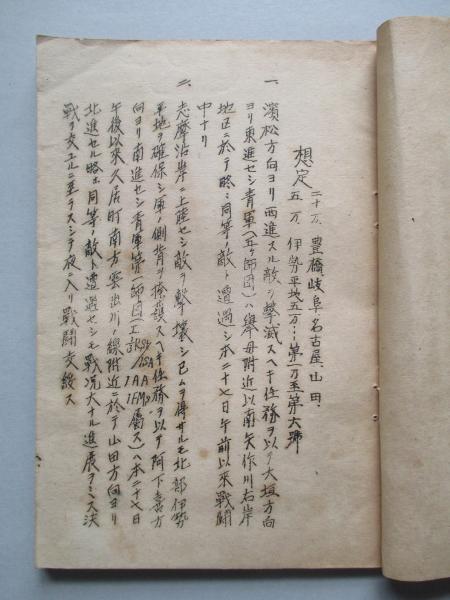 想定
二十万 豊橋、岐阜、名古屋、山田、
五万 伊勢平地五万…第一乃至第六號
一、濱松方向ヨリ西進スル敵ヲ撃滅スヘキ任務ヲ以テ大垣方向
ヨリ東進セシ青軍(五ケ師団)ハ擧母附近以南矢作川右岸
地区ニ於テ略ホ同等ノ敵ト遭遇シ本二十七日午前以来戦闘
中ナリ
二、志摩沿岸ニ上陸セシ敵ヲ撃攘シ已ムヲ得サルモ北部伊勢
平地ヲ確保シ軍ノ側背ヲ掩護スヘキ任務ヲ以テ阿下喜方
向ヨリ南進セシ青軍第一師団(属ス)ハ本二十七日
午後以来久居町南方雲出川ノ線附近ニ於テ山田方向ヨリ
北進セル略ホ同等ノ敵ト遭遇セシモ戦况大ナル進展ヲミス決
戦ヲ交エルニ至ラスシテ夜ニ入リ戦闘交綏ス